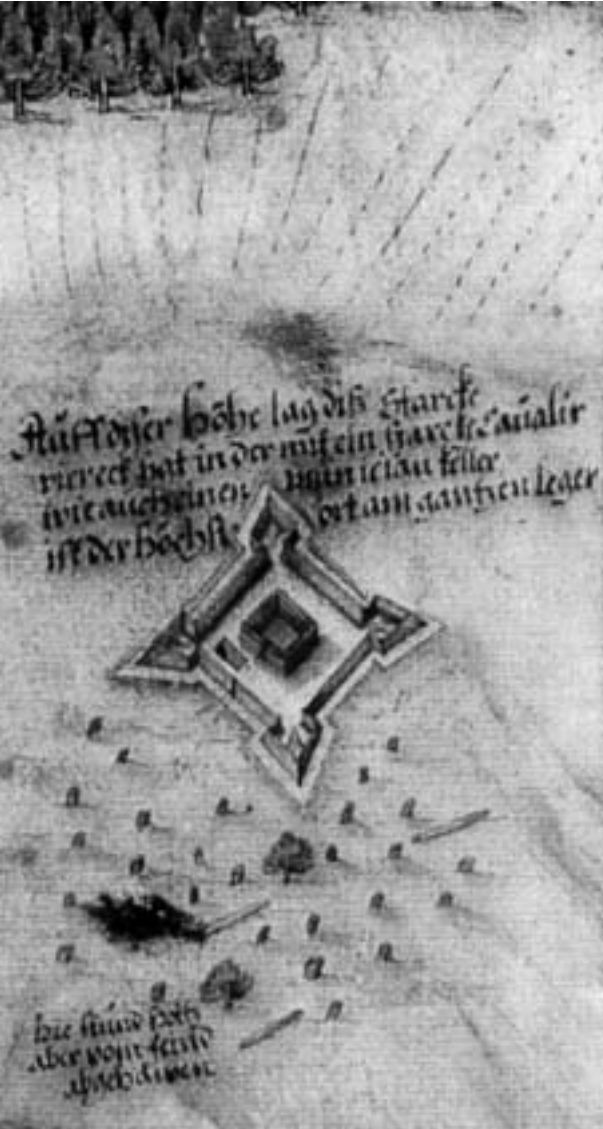 Auff diser Höhe lag diß Starcke
viereck hat in der mit ein starcke Caualir
wie auch einen keller
ist der höchst ort am gantzen leger
hie stund holtz
aber vom feind
abgehauwen